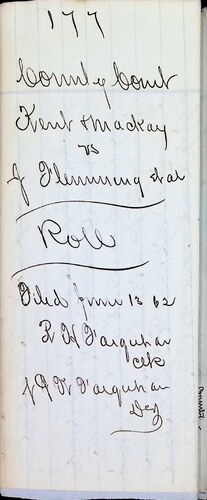 177
County Court
Kent & Mackay
vs
J Flemming et al
Roll
Filed June 13 62
R H Farquhar
clk
J T Farquhar
Dep